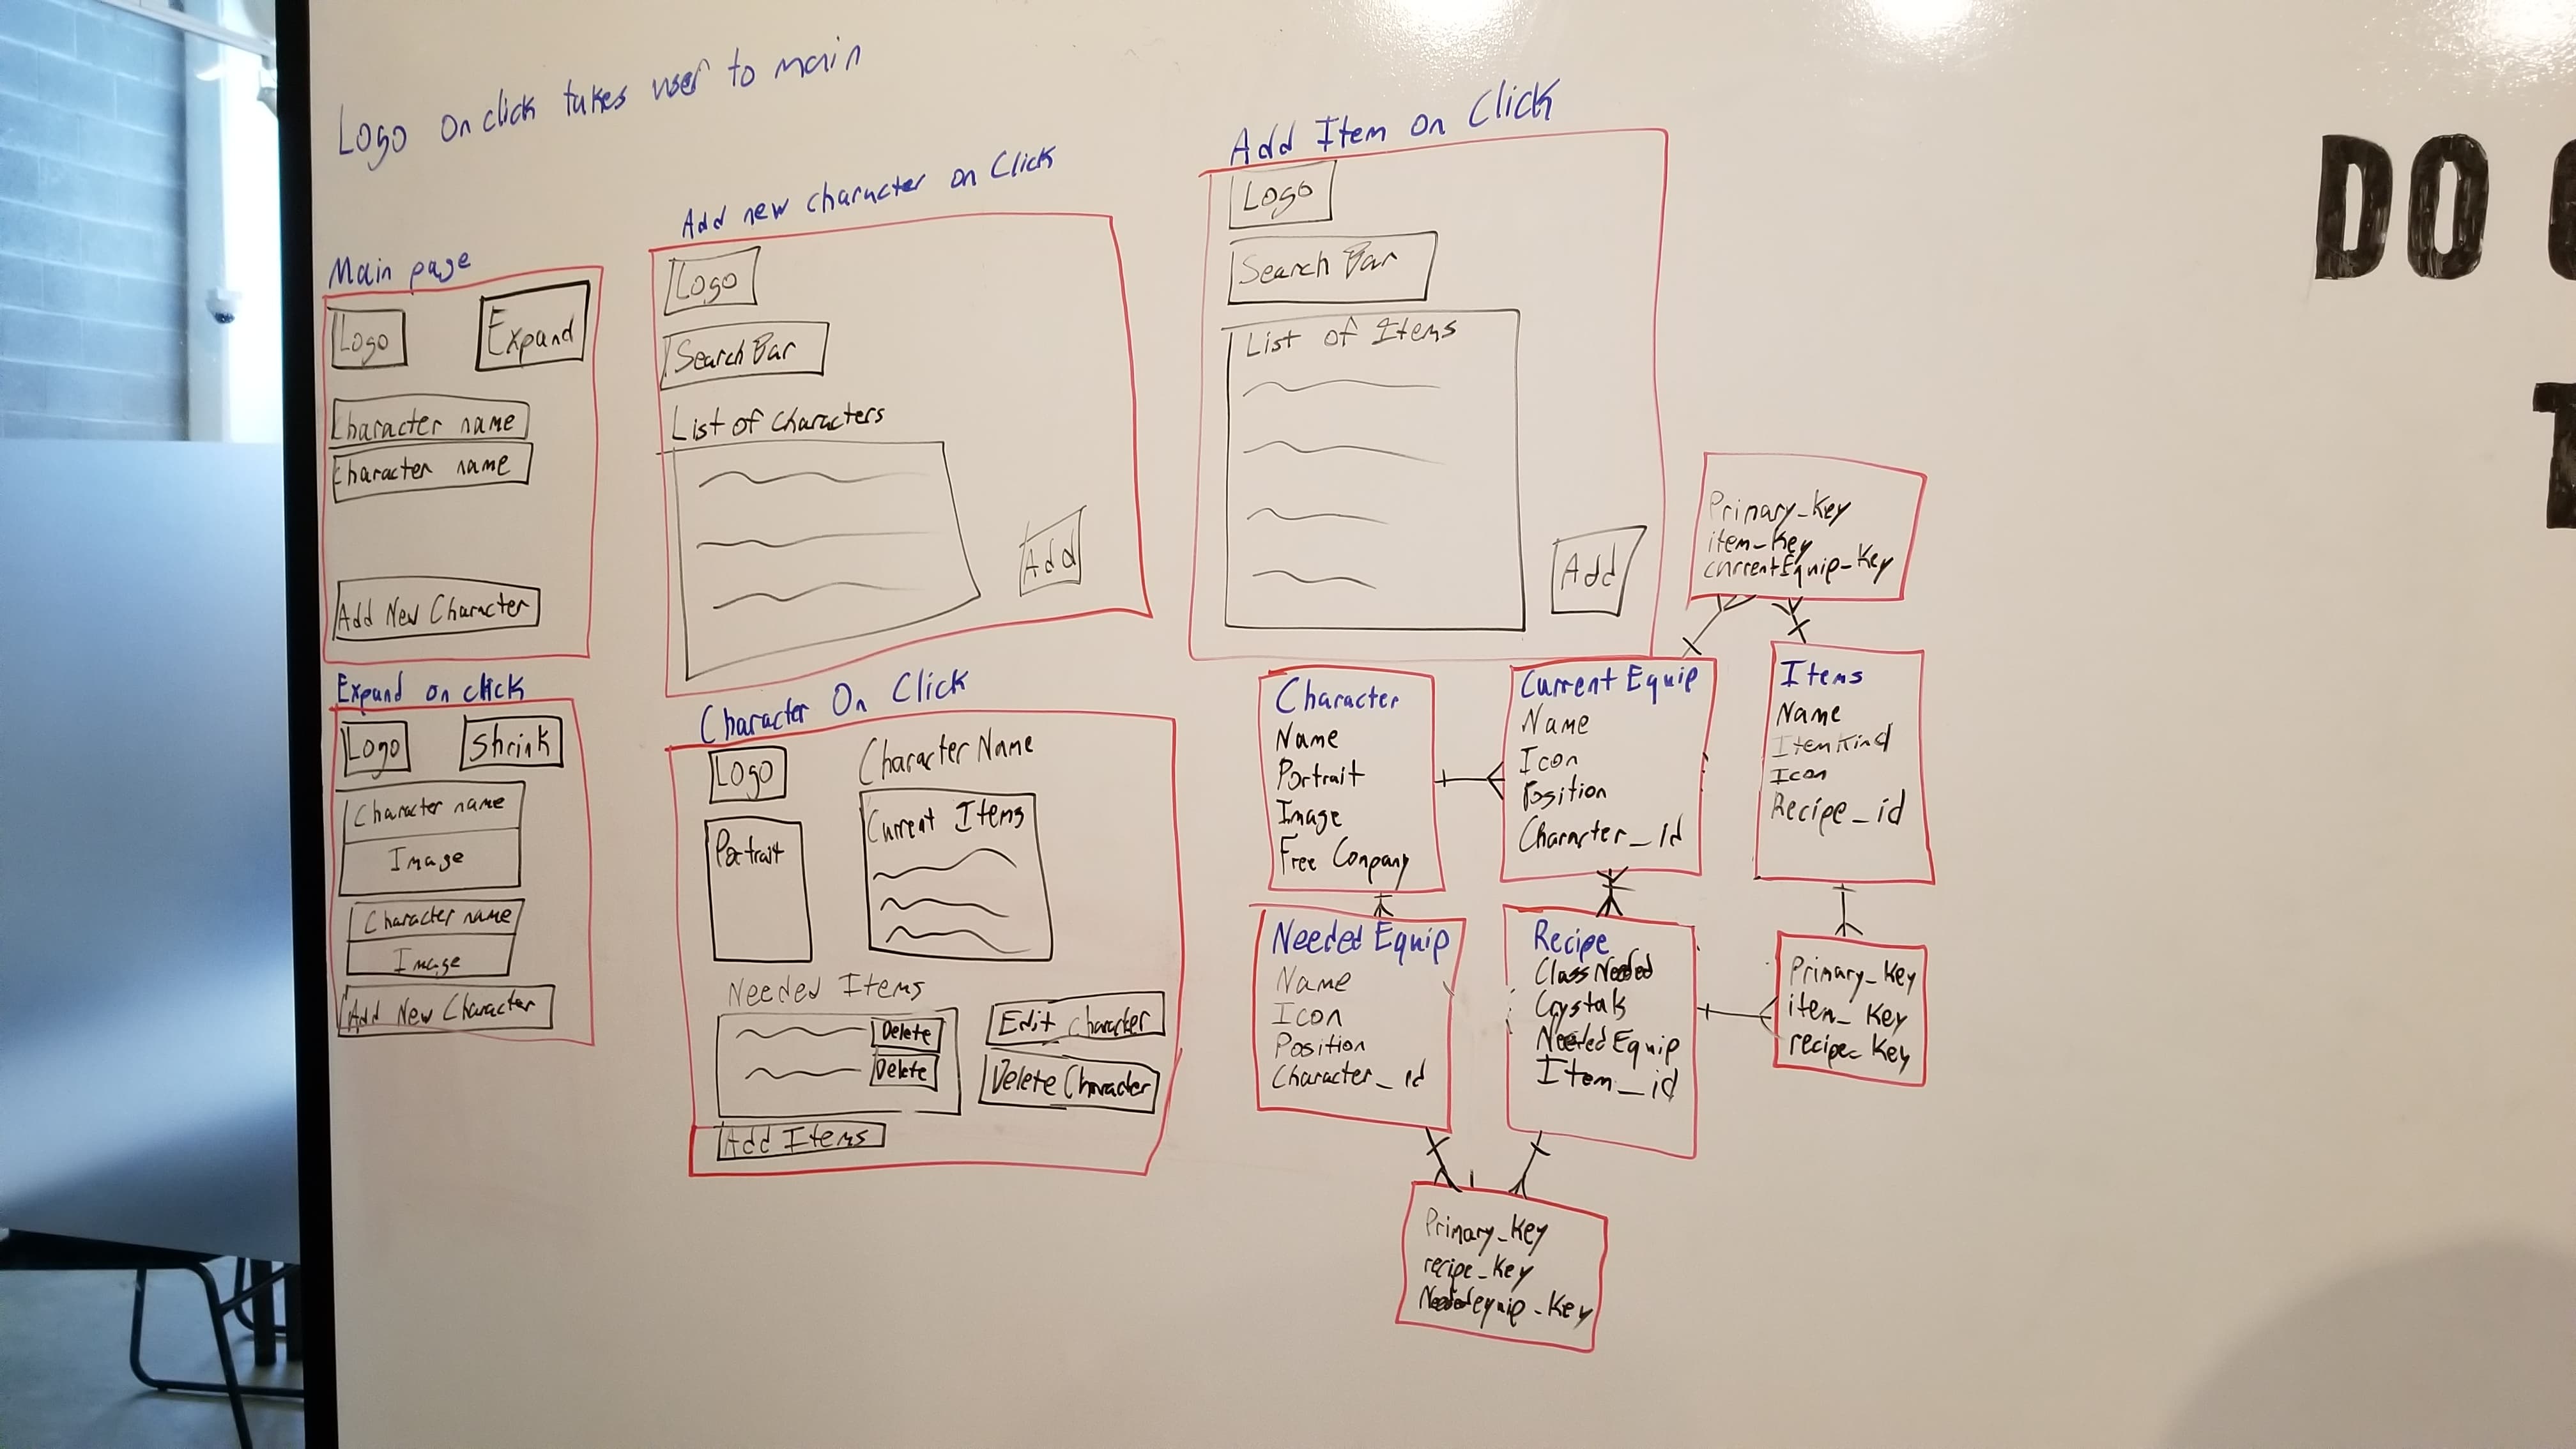 Logo on click takes user to main
Main page
Logo
Expand
Character name
Character name
Add New Character
Expand on click
Logo
Shrink
Character name
Image
Character name
Image
Add New Character
Add new character on Click
Logo
Search Bar
List of Characters
Add
Character On Click
Logo
Character Name
Portrait
Current Items
Needed Items
Delete
Delete
Edit Character
Delete Character
Add Items
Add Item on Click
Logo
Search Bar
List of Items
Add
Primary_Key
item_Key
currentEquip_Key
Character
Name
Portrait
Image
Free Company
Current Equip
Name
Icon
Position
Character_id
Items
Name
ItemKind
Icon
Recipe_id
Needed Equip
Name
Icon
Position
Character_id
Recipe
Class Needed
Crystals
Needed Equip
Item_id
Primary_Key
item_Key
recipe_Key
Primary_Key
recipe_Key
Neededequip_Key
DO